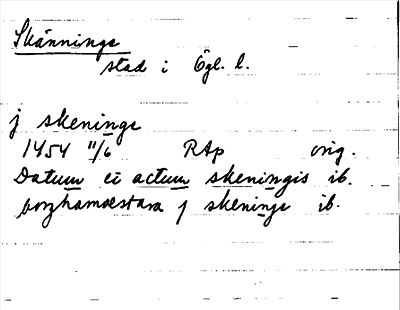 Skännings
stad i Ögl. l.
j skeninge
1454 11/6 RAp orig.
Datum ei actum skeningis ib.
borghamæstara j skeninge ib.